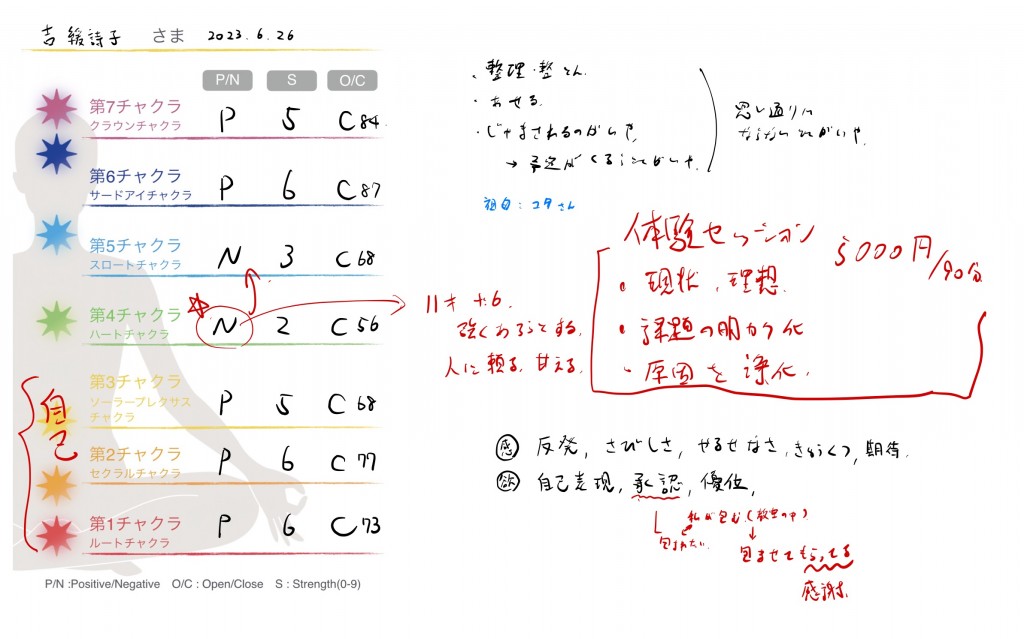 吉 緩詩子 さま 2023.6.26
P/N S O/C
第7チャクラ
クラウンチャクラ
P 5 C84
第6チャクラ
サードアイチャクラ
P 6 C87
第5チャクラ
スロートチャクラ
N 3 C68
第4チャクラ
ハートチャクラ
N 2 C56
第3チャクラ
ソーラープレクサス
チャクラ
P 5 C68
第2チャクラ
セクラルチャクラ
P 6 C77
第1チャクラ
ルートチャクラ
P 6 C73
自己
P/N :Positive/Negative O/C : Open/Close S : Strength(0-9)
・整理・整とん
・あせる
・じゃまされるのがいや
→ 予定が
思い通りに
ならない
体験セッション
5000円/90分
・現状、理想
・課題の明かく化
・原因を浄化
強くあろうとする
人に頼る、甘える
感 反発, さびしさ, やるせなさ, きゅうくつ, 期待.
欲 自己表現, 承認, 優位,
私が包む(教室の中)
包まれたい
包ませてもらってる
感謝